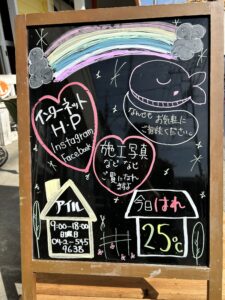 なんでも お気軽に
ご相談ください
インターネット
H・P
Instagram
Facebook
施工写真
など など
ご覧になれ
ますよ
アイル
9:00-18:00
日曜日
042-545
9638
今日はれ
25℃